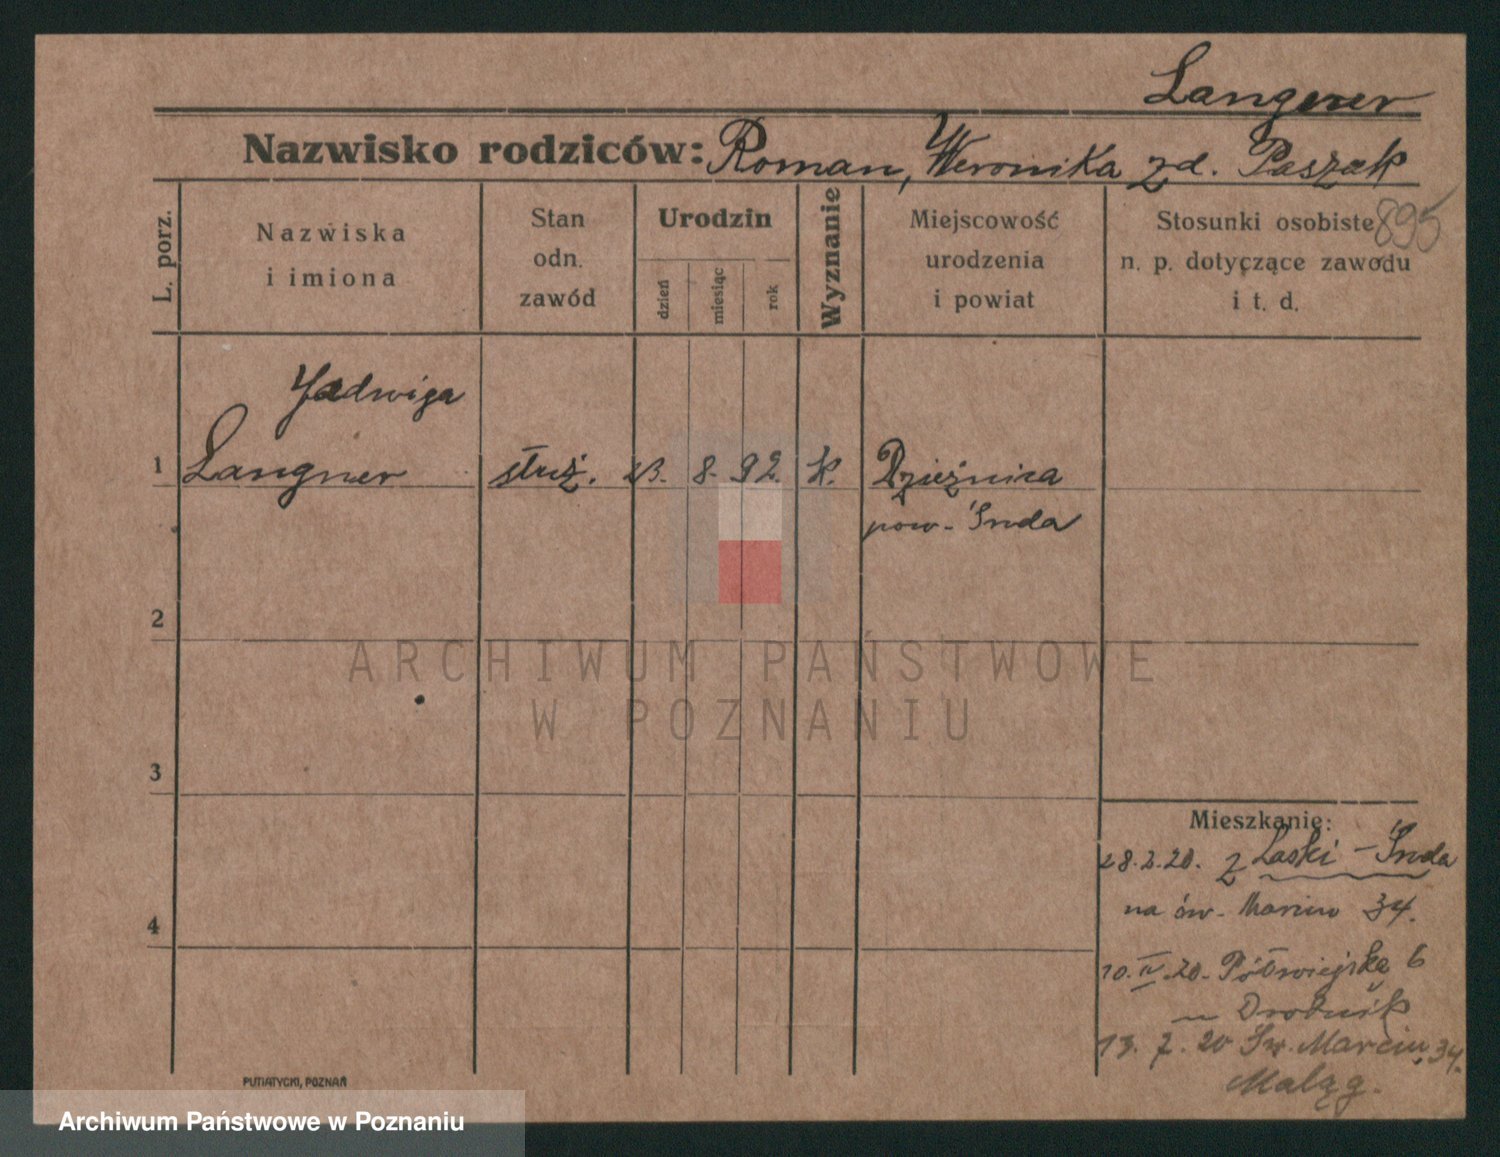 Langner
Nazwisko rodziców: Roman, Weronika zd. Paszak
L. porz.
Nazwiska
i imiona
Stan
odn.
zawód
Urodzin
dzień
miesiąc
rok
Wyznanie
Miejscowość
urodzenia
i powiat
Stosunki osobiste
n. p. dotyczące zawodu
i t. d.
895
Jadwiga
1 Langner służ. 23. 8. 92. k. Dzieżnica
pow. Środa
2
3
4
ARCHIWUM PAŃSTWOWE
W POZNANIU
Mieszkanie:
28.2.20. z Laski - Środa
na św. Marcin 34.
10.IV.20. Półwiejska 6
Drobnik
13. 7. 20 Św. Marcin 34.
PUTIATYCKI, POZNAŃ
Archiwum Państwowe w Poznaniu